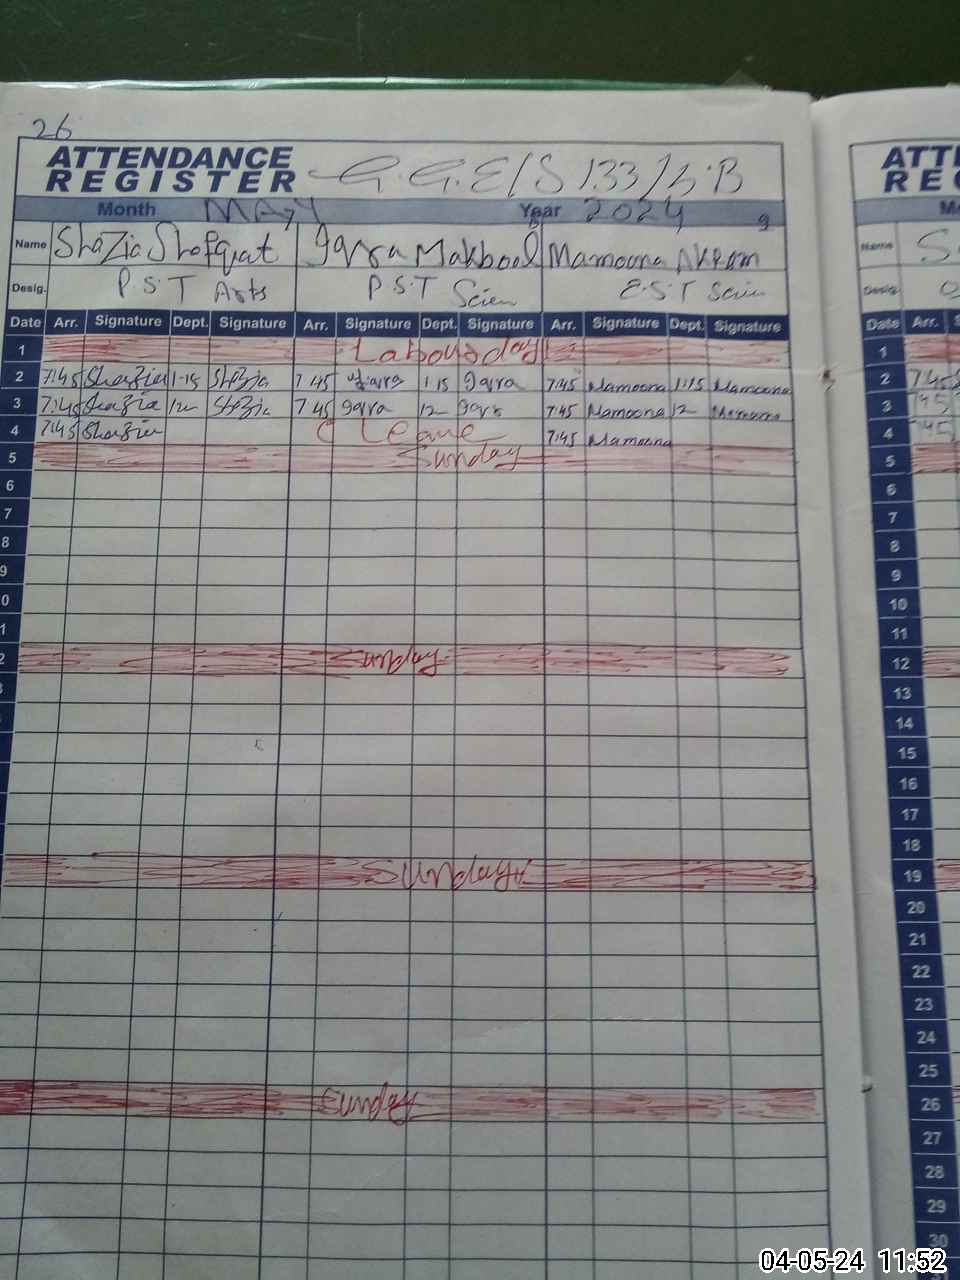 26
ATTENDANCE REGISTER G.G.E/S 133/S.B
Month MAY Year 2024 9
Name Shazia Shafqat Iqra Makbool Mamoona Akram
Desig. P.S.T Arts P.S.T Scien E.S.T Scien
Date Arr. Signature Dept. Signature Arr. Signature Dept. Signature Arr. Signature Dept. Signature
1 Labour day
2 7:45 Shazia 1-15 Shazia 7 45 Iqra 1 15 Iqra 7:45 Mamoona 1:15 Mamoona
3 7:45 Shazia 12 Shazia 7 45 Iqra 12 Iqra 7:45 Mamoona 12 Mamoona
4 7:45 Shazia C Leave 7:45 Mamoona
5 Sunday
6
7
8
9
0
1
2 Sunday
Sunday
Sunday
ATT
RE
Name S
Desig.
Date Arr.
1
2 7:45
3 7:45
4 7:45
5
6
7
8
9
10
11
12
13
14
15
16
17
18
19
20
21
22
23
24
25
26
27
28
29
30
04-05-24 11:52